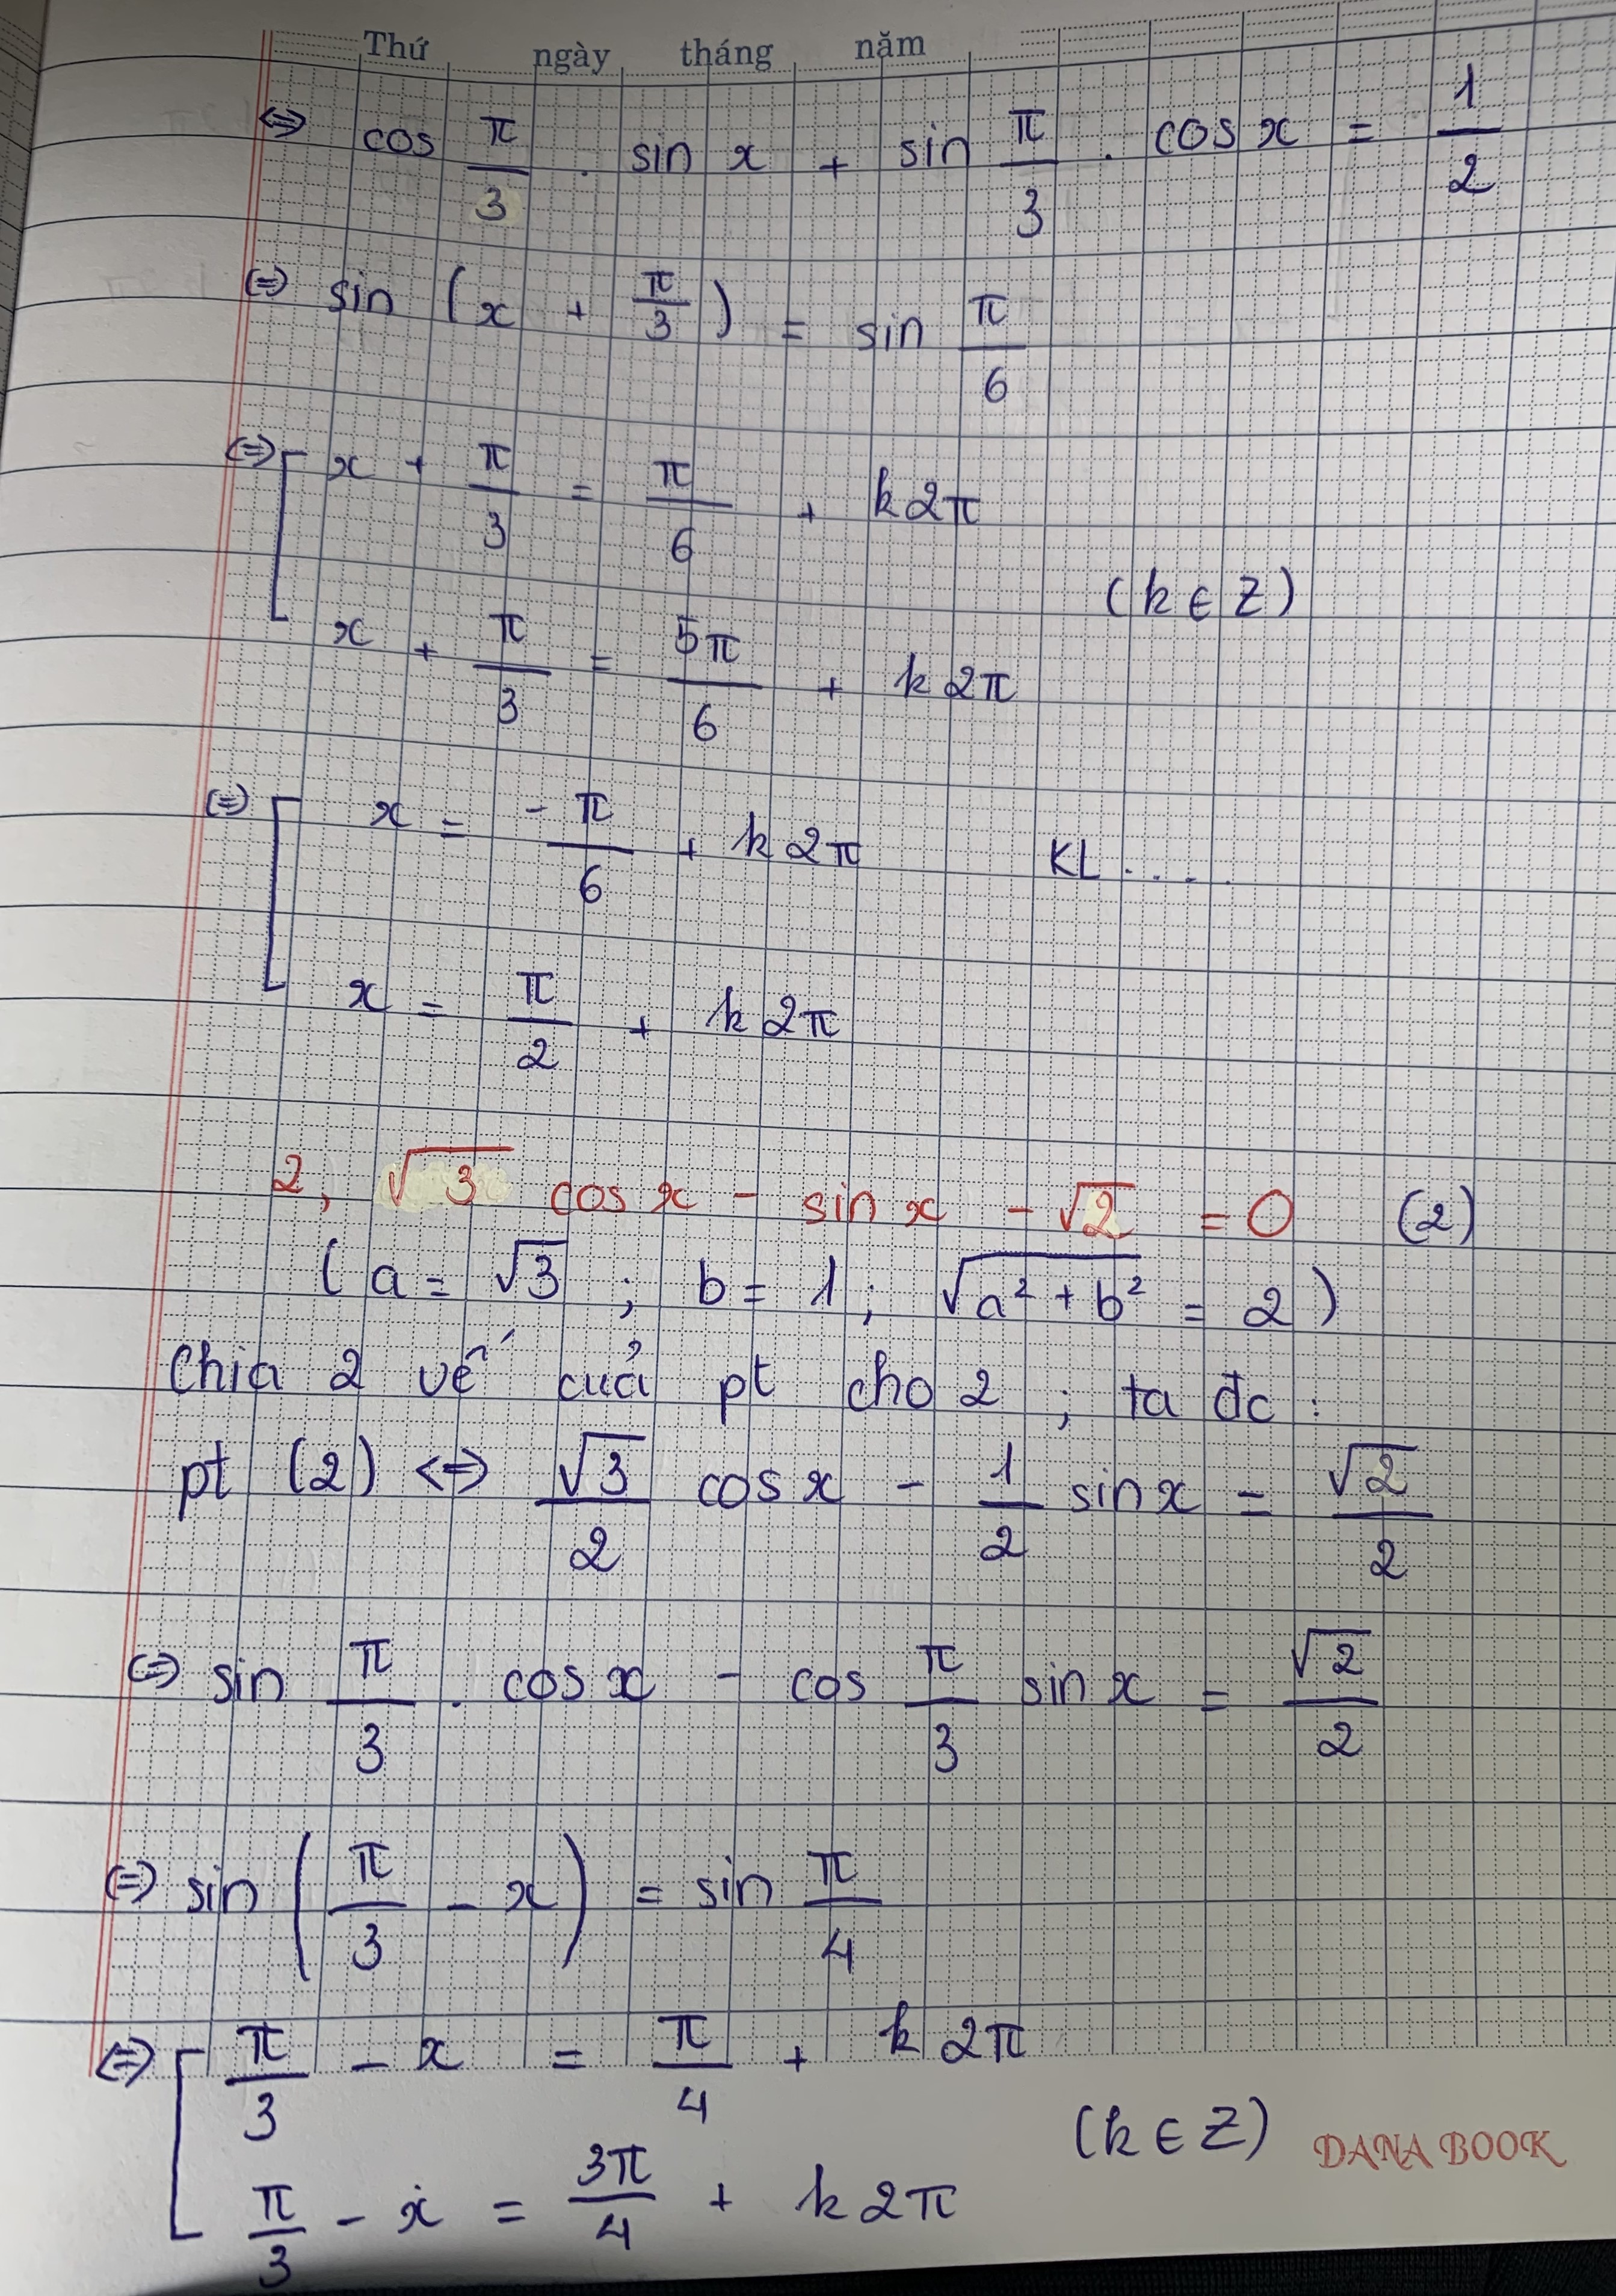 Thứ ngày tháng năm
⇔ cos π/3 . sin x + sin π/3 . cos x = 1/2
⇔ sin (x + π/3) = sin π/6
⇔ [ x + π/3 = π/6 + k2π
(k ∈ Z)
x + π/3 = 5π/6 + k2π
⇔ [ x = -π/6 + k2π KL ....
x = π/2 + k2π
2, √3 cos x - sin x - √2 = 0 (2)
( a = √3 ; b = 1 ; √(a² + b²) = 2 )
Chia 2 vế của pt cho 2 ; ta đc :
pt (2) ⇔ √3/2 cos x - 1/2 sin x = √2/2
⇔ sin π/3 . cos x - cos π/3 sin x = √2/2
⇔ sin (π/3 - x) = sin π/4
⇔ [ π/3 - x = π/4 + k2π
(k ∈ Z) DANA BOOK
π/3 - x = 3π/4 + k2π